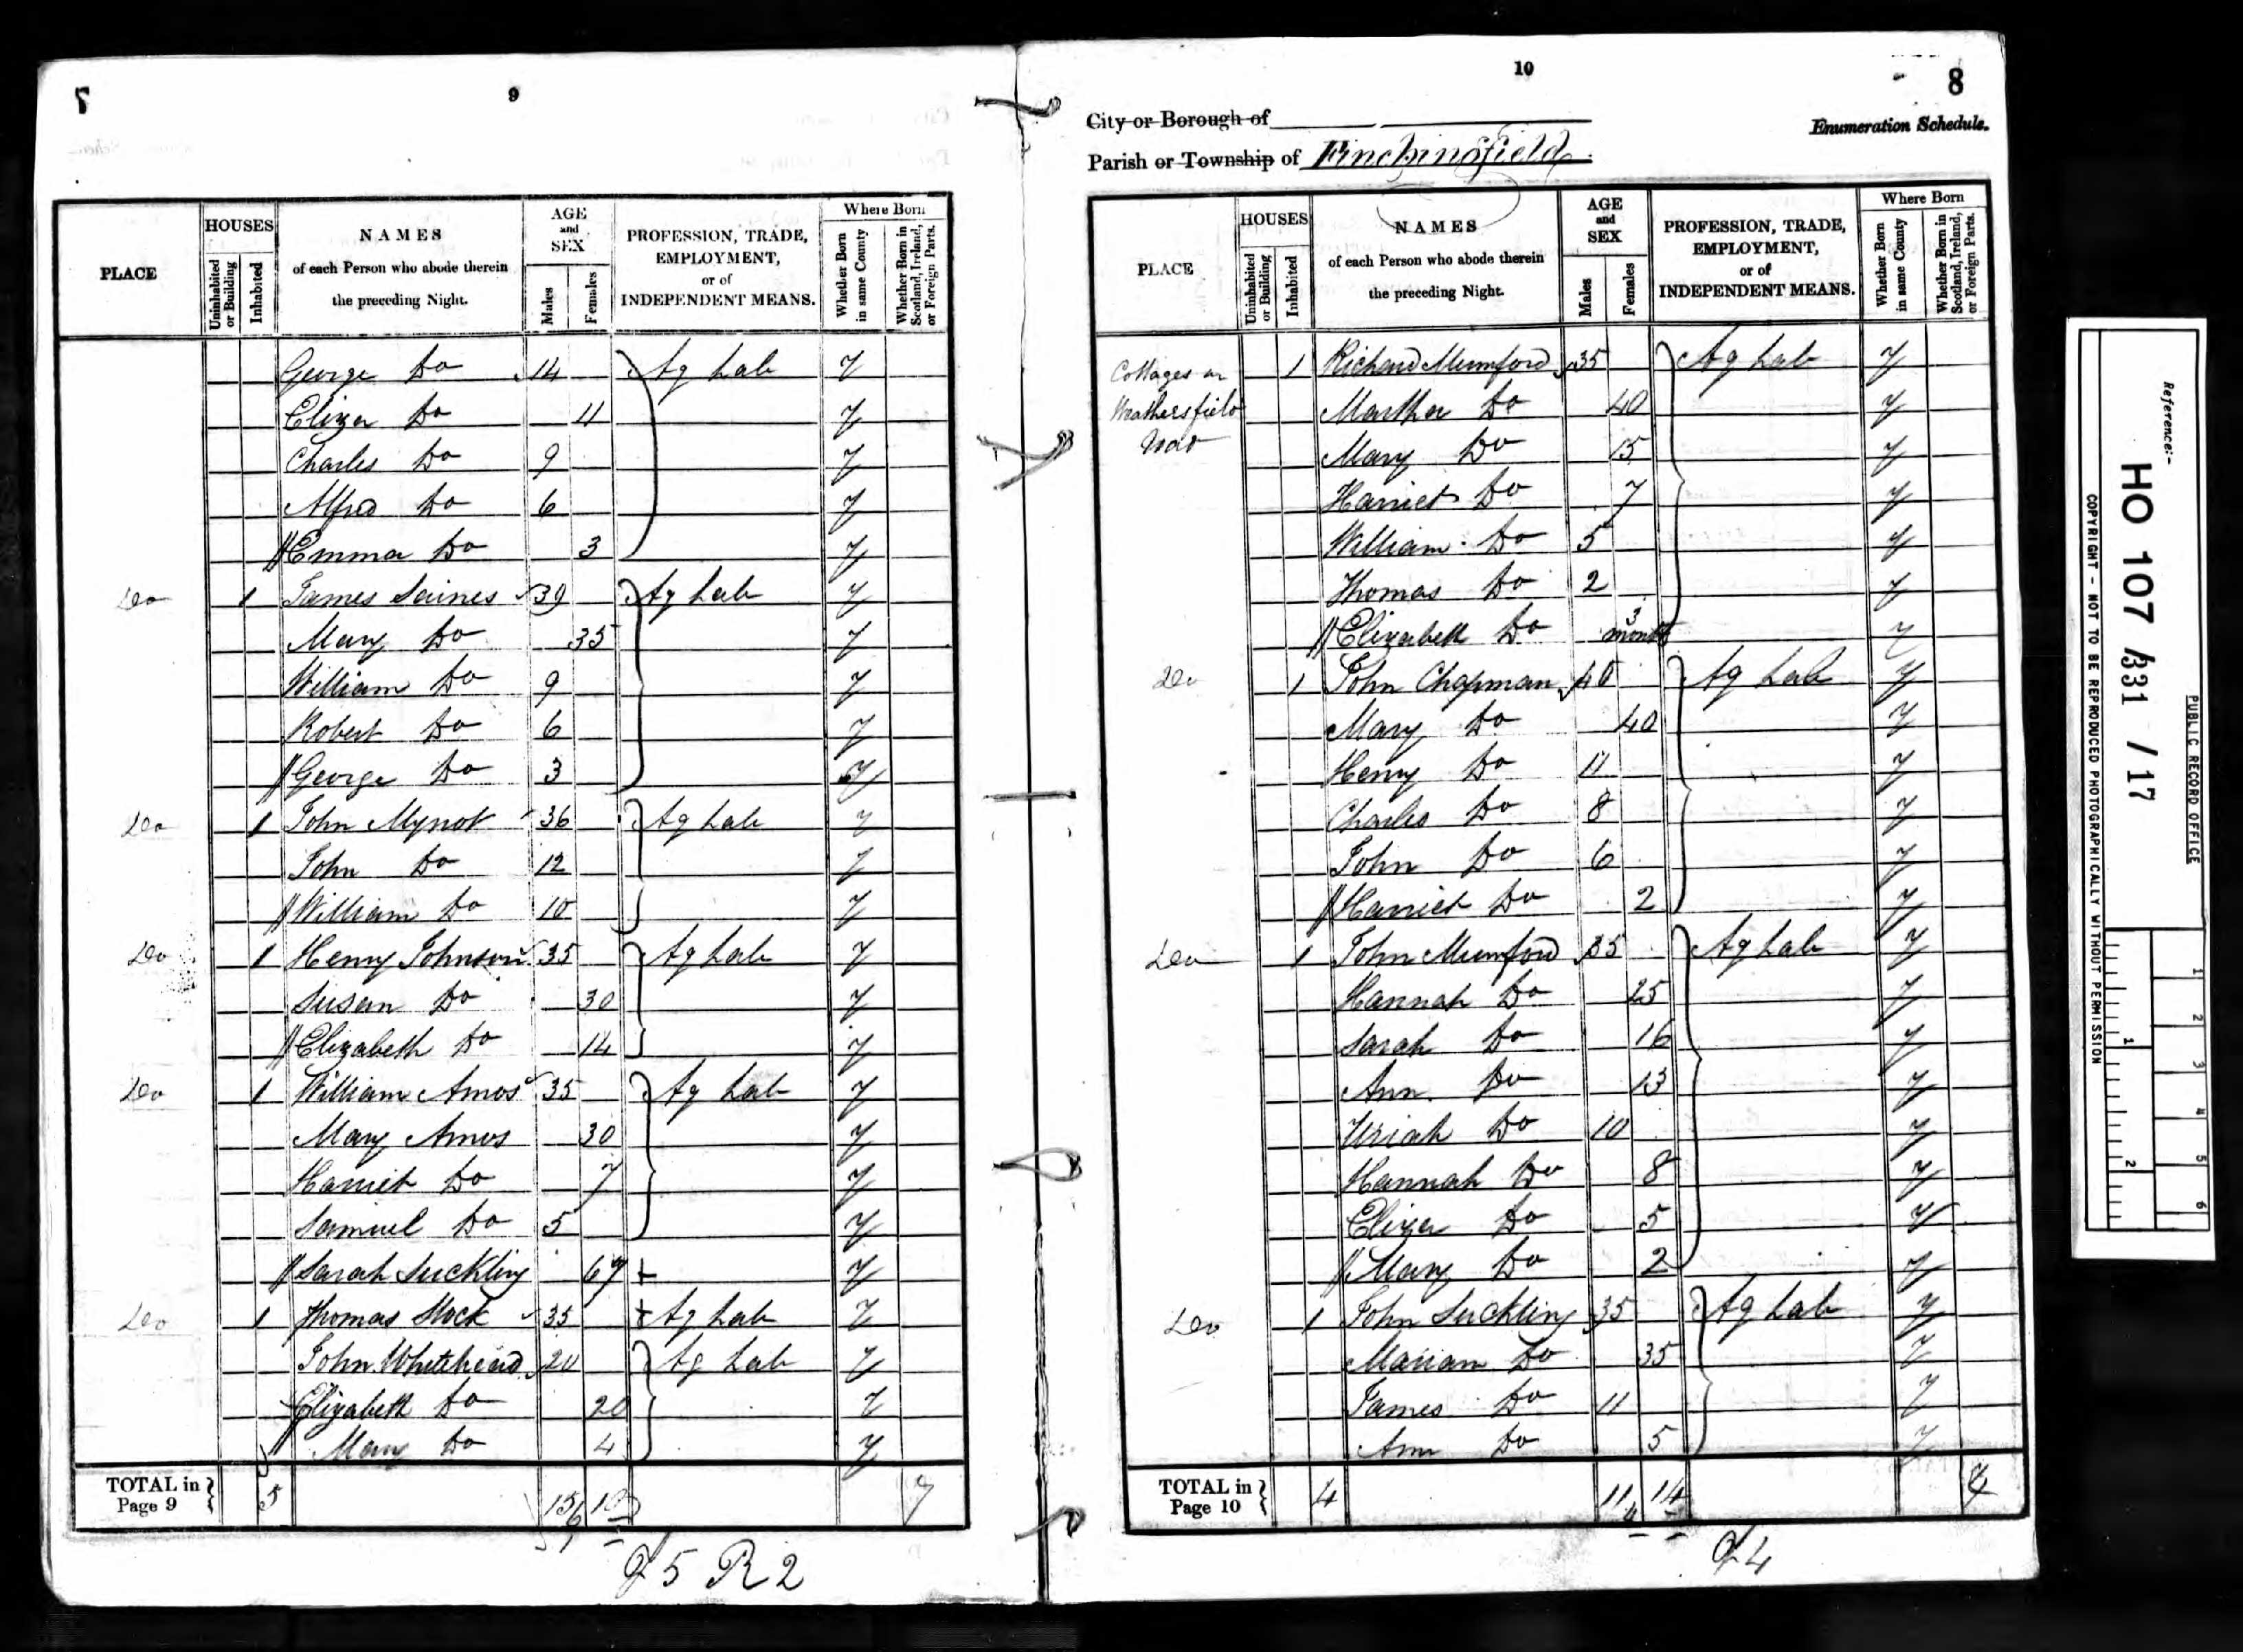 7
9
PLACE
HOUSES
Uninhabited or Building
Inhabited
NAMES
of each Person who abode therein
the preceding Night.
AGE
and
SEX
Males
Females
PROFESSION, TRADE,
EMPLOYMENT,
or of
INDEPENDENT MEANS.
Where Born
Whether Born in same County
Whether Born in Scotland, Ireland, or Foreign Parts.
George Do 14 Ag Lab Y
Eliza Do 11 Y
Charles Do 9 Y
Alfred Do 6 Y
Emma Do 3 Y
Do 1 James Saines 39 Ag Lab Y
Mary Do 35 Y
William Do 9 Y
Robert Do 6 Y
George Do 3 Y
Do 1 John Mynot 36 Ag Lab Y
John Do 12 Y
William Do 10 Y
Do 1 Henry Johnson 35 Ag Lab Y
Susan Do 30 Y
Elizabeth Do 14 Y
Do 1 William Amos 35 Ag Lab Y
Mary Amos 30 Y
Harriet Do 7 Y
Samuel Do 5 Y
Sarah Suckling 67 Y
Do 1 Thomas Mock 35 Ag Lab Y
John Whitehead 20 Ag Lab Y
Elizabeth Do 20 Y
Mary Do 4 Y
TOTAL in Page 9 5 15 10 7
5 R 2
10
8
City or Borough of
Enumeration Schedule.
Parish or Township of Finchingfield
PLACE
HOUSES
Uninhabited or Building
Inhabited
NAMES
of each Person who abode therein
the preceding Night.
AGE
and
SEX
Males
Females
PROFESSION, TRADE,
EMPLOYMENT,
or of
INDEPENDENT MEANS.
Where Born
Whether Born in same County
Whether Born in Scotland, Ireland, or Foreign Parts.
Cottages on 1 Richard Mumford 35 Ag Lab Y
Weathersfield Martha Do 40 Y
Road Mary Do 15 Y
Harriet Do 7 Y
William Do 5 Y
Thomas Do 2 Y
Elizabeth Do 3 months Y
Do 1 John Chapman 40 Ag Lab Y
Mary Do 40 Y
Henry Do 11 Y
Charles Do 8 Y
John Do 6 Y
Harriet Do 2 Y
Do 1 John Mumford 35 Ag Lab Y
Hannah Do 25 Y
Sarah Do 16 Y
Ann Do 13 Y
Uriah Do 10 Y
Hannah Do 8 Y
Eliza Do 5 Y
Mary Do 2 Y
Do 1 John Suckling 35 Ag Lab Y
Mariam Do 35 Y
James Do 11 Y
Ann Do 5 Y
TOTAL in Page 10 4 11 14 4
4
Reference:-
HO 107 /331 /17
PUBLIC RECORD OFFICE
COPYRIGHT - NOT TO BE REPRODUCED PHOTOGRAPHICALLY WITHOUT PERMISSION
1 2 3 4 5 6
1 2